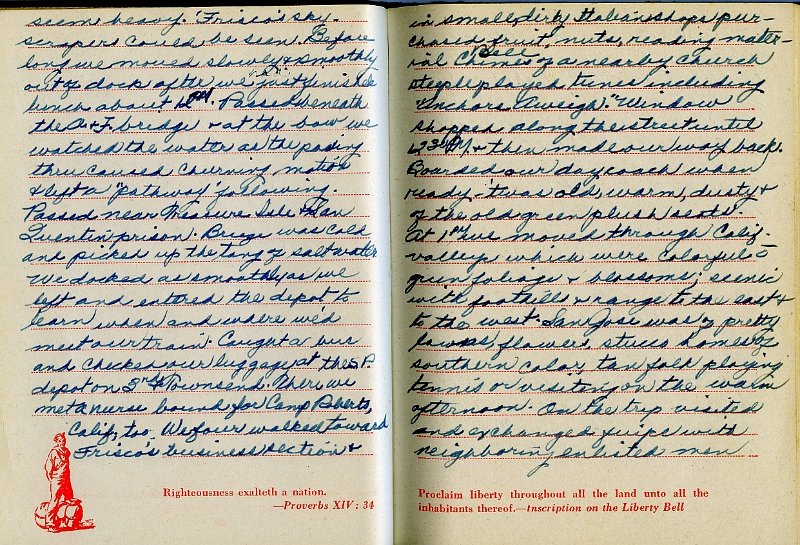 seem heavy. 'Frisco's sky-
scrapers could be seen. Before
long we moved slowly & smoothly
out of dock after we just finished
lunch about 12 PM. Passed beneath
the O. & F. bridge & at the bow we
watched the water as the passing
thru caused churning motion
& left a "pathway" following.
Passed near Treasure Isle & San
Quentin prison. Breeze was cold
and picked up the tang of salt water
We docked as smoothly as we
left and entered the depot to
learn when and where we'd
meet our train. Caught a bus
and checked our luggage at the S.P.
depot on 3rd & Townsend. There we
met a nurse bound for Camp Roberts,
Calif, too. We four walked toward
Frisco's business section &
Righteousness exalteth a nation.
—Proverbs XIV: 34
in small, dirty Italian shops pur-
chased fruit, nuts, reading mater-
ial. Chimes of a nearby church
steeple played tunes including
"Anchors Aweigh." Window
shopped along the street until
& then made our way back.
Boarded our day coach when
ready. 'Twas old, warm, dusty &
of the old green plush seats!
At 1 PM we moved through Calif.
valleys which were colorful
foliage & blossoms; scenic
with foothills & range to the east &
to the west. San Jose was of pretty
lawns, flowers, stucco homes of
southern color, tan folk playing
tennis or visiting on the warm
afternoon. On the trip visited
and exchanged quips with
neighboring enlisted men
Proclaim liberty throughout all the land unto all the
inhabitants thereof.—Inscription on the Liberty Bell